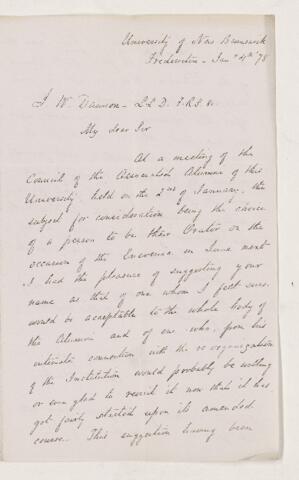 University of New Brunswick
Fredericton - Jany 4th 78
J. W. Dawson - LLD. F.R.S. &c.
My dear Sir
At a meeting of the
Council of the Associated Alumni of this
University held on the 2nd of January, the
subject for consideration being the choice
of a person to be their Orator on the
occasion of the Encœnia in June next
I had the pleasure of suggesting your
name as that of one whom I felt sure
would be acceptable to the whole body of
the Alumni and of one who, from his
intimate connection with the reorganization
of the Institution would probably be willing
or even glad to revisit it now that it has
got fairly started upon its amended
course. This suggestion having been